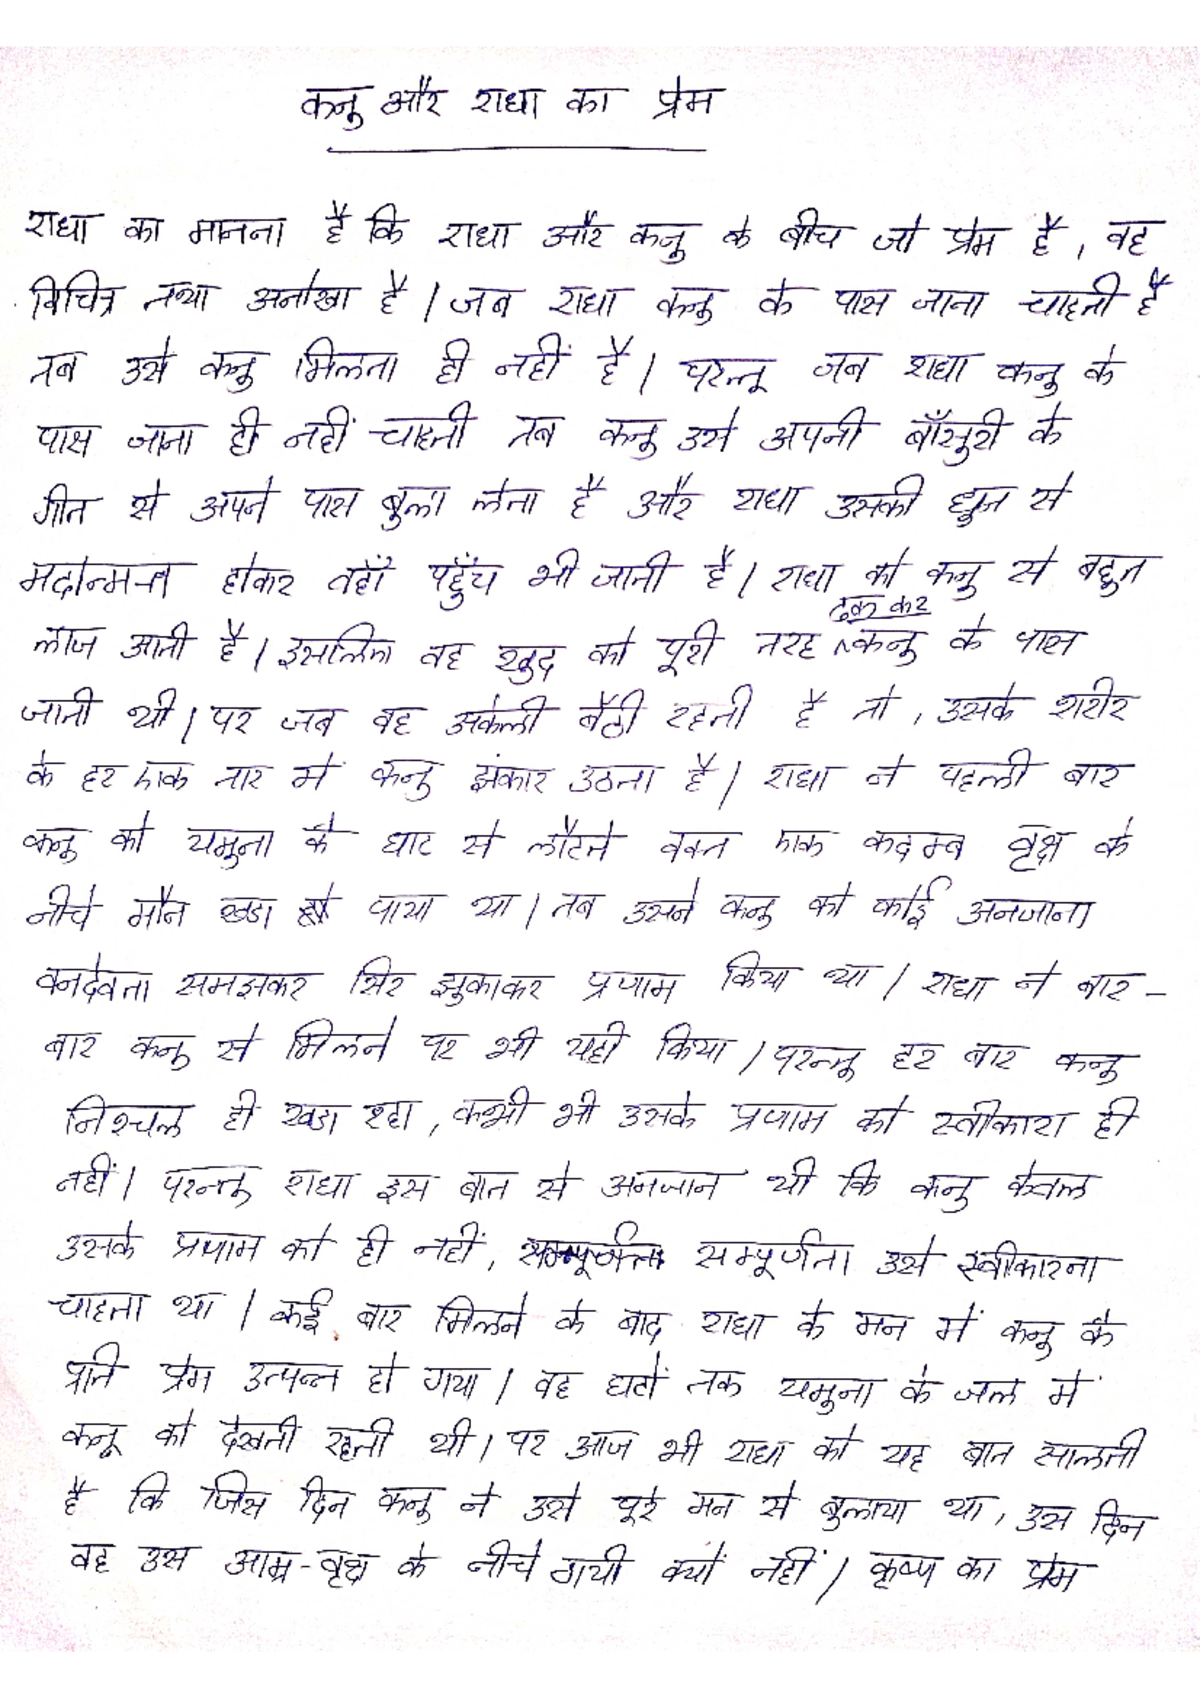 कनु और राधा का प्रेम
राधा का मानना है कि राधा और कनु के बीच जो प्रेम है, वह
विचित्र तथा अनोखा है। जब राधा कनु के पास जाना चाहती है
तब उसे कनु मिलता ही नहीं है। परन्तु जब राधा कनु के
पास जाना ही नहीं चाहती तब कनु उसे अपनी बाँसुरी के
गीत से अपने पास बुला लेता है और राधा उसकी धुन से
मदोन्मत्त होकर वहाँ पहुँच भी जाती है। राधा को कनु से बहुत
ढक कर
लाज आती है। इसलिए वह खुद को पूरी तरह ^कनु के पास
जाती थी। पर जब वह अकेली बैठी रहती है तो, उसके शरीर
के हर एक तार में कनु झंकार उठता है। राधा ने पहली बार
कनु को यमुना के घाट से लौटते वक्त एक कदम्ब वृक्ष के
नीचे मौन खडा पाया था। तब उसने कनु को कोई अनजाना
वनदेवता समझकर सिर झुकाकर प्रणाम किया था। राधा ने बार-
बार कनु से मिलने पर भी यही किया। परन्तु हर बार कनु
निश्चल ही खडा रहा, कभी भी उसके प्रणाम को स्वीकारा ही
नहीं। परन्तु राधा इस बात से अनजान थी कि कनु केवल
उसके प्रणाम को ही नहीं, सम्पूर्णता उसे स्वीकारना
चाहता था। कई बार मिलने के बाद राधा के मन में कनु के
प्रति प्रेम उत्पन्न हो गया। वह घंटों तक यमुना के जल में
कनु को देखती रहती थी। पर आज भी राधा को यह बात सालती
है कि जिस दिन कनु ने उसे पूरे मन से बुलाया था, उस दिन
वह उस आम्र-वृक्ष के नीचे गयी क्यों नहीं। कृष्ण का प्रेम